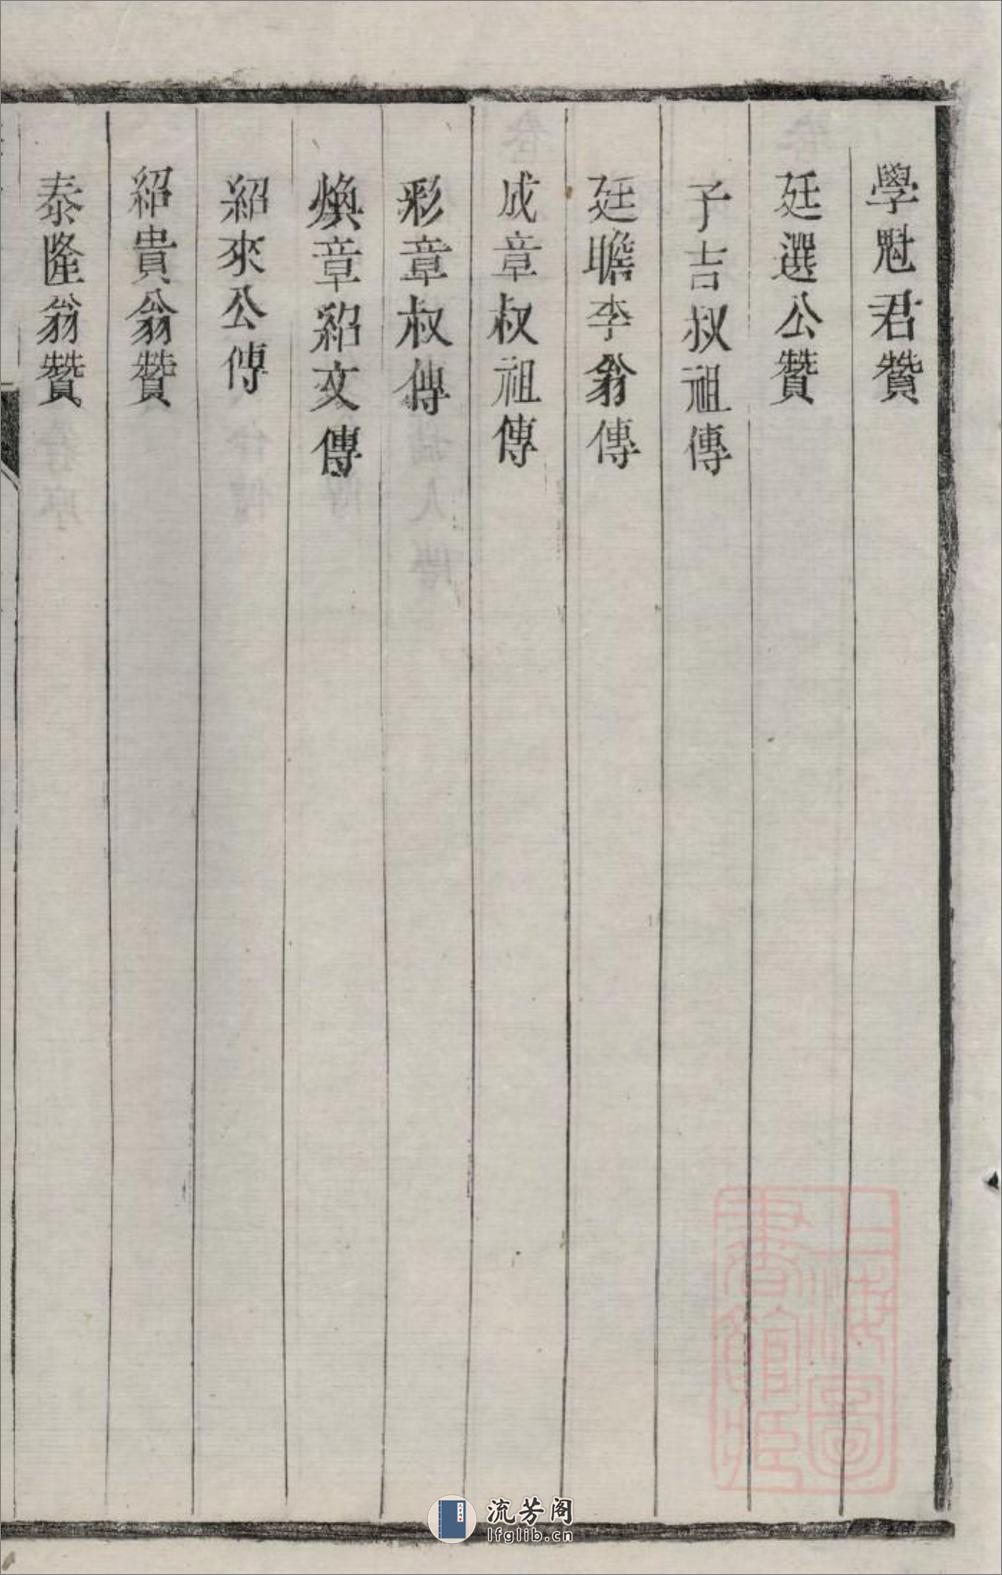 學魁君贊
廷選公贊
子吉叔祖傳
廷瞻李翁傳
成章叔祖傳
彩章叔傳
煥章紹文傳
紹來公傳
紹貴翁贊
泰隆翁贊
上海圖
書館藏
流芳阁
lfglib.cn